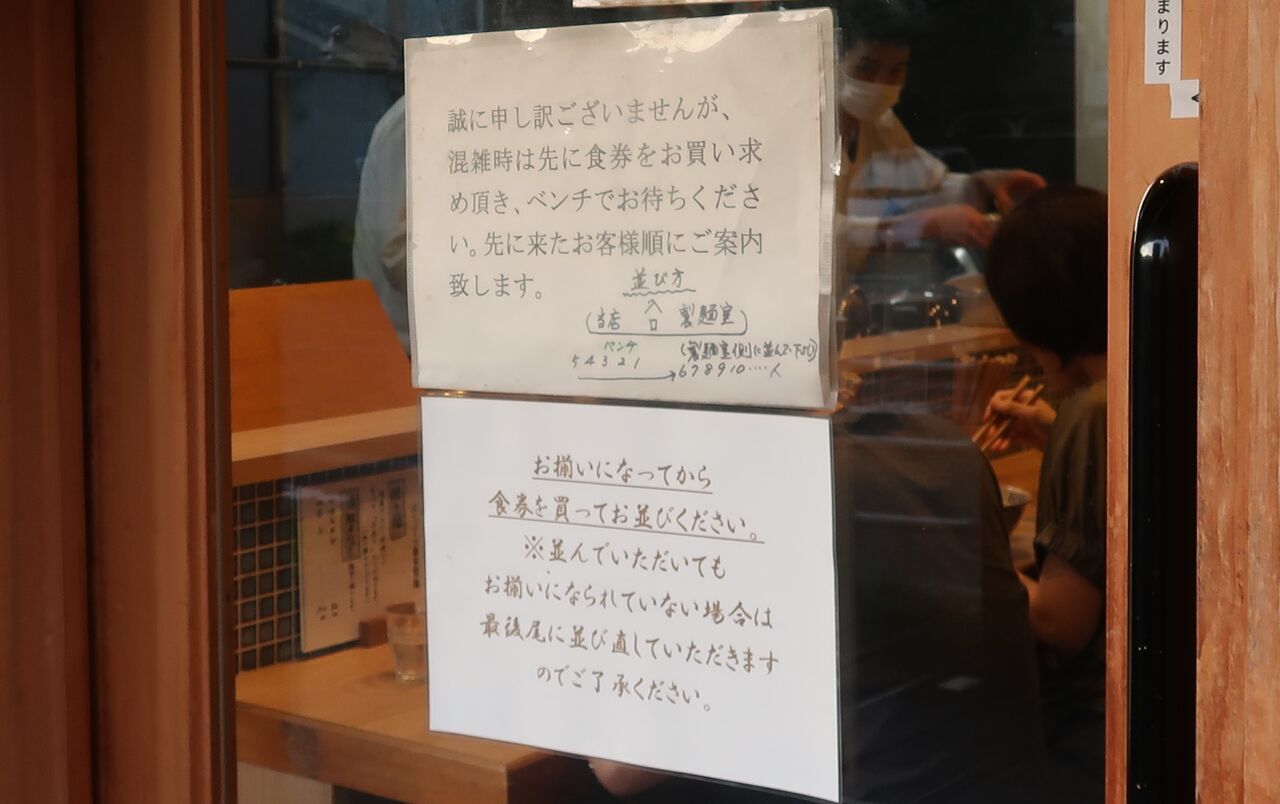 まります
誠に申し訳ございませんが、
混雑時は先に食券をお買い求
め頂き、ベンチでお待ちくださ
い。先に来たお客様順にご案内
致します。
並び方
入口
(当店 製麺室)
ベンチ (製麺室側に並んで下さい)
5 4 3 2 1 → 6 7 8 9 10 ‥‥人
お揃いになってから
食券を買ってお並びください。
※並んでいただいても
お揃いになられていない場合は
最後尾に並び直していただきます
のでご了承ください。